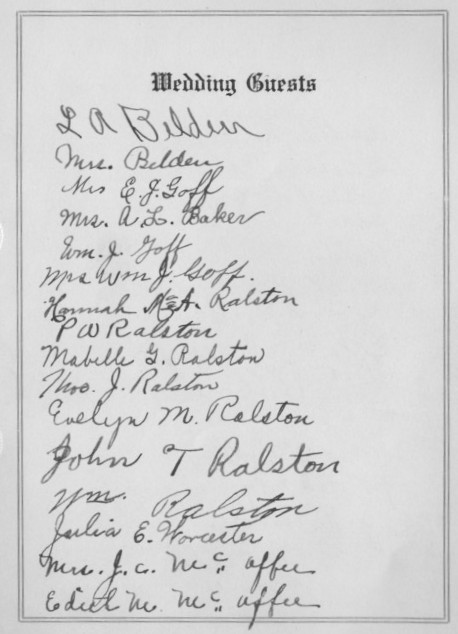 Wedding Guests
L A Belden
Mrs. Belden
Mrs E. J. Goff
Mrs. A. L. Baker
Wm. J. Goff
Mrs Wm J. Goff.
Hannah McA. Ralston
P W Ralston
Mabelle G. Ralston
J. Ralston
Evelyn M. Ralston
John T Ralston
Wm. Ralston
Julia E. Worcester
Mrs. J. C. Mc affee
Edith M. Mc affee